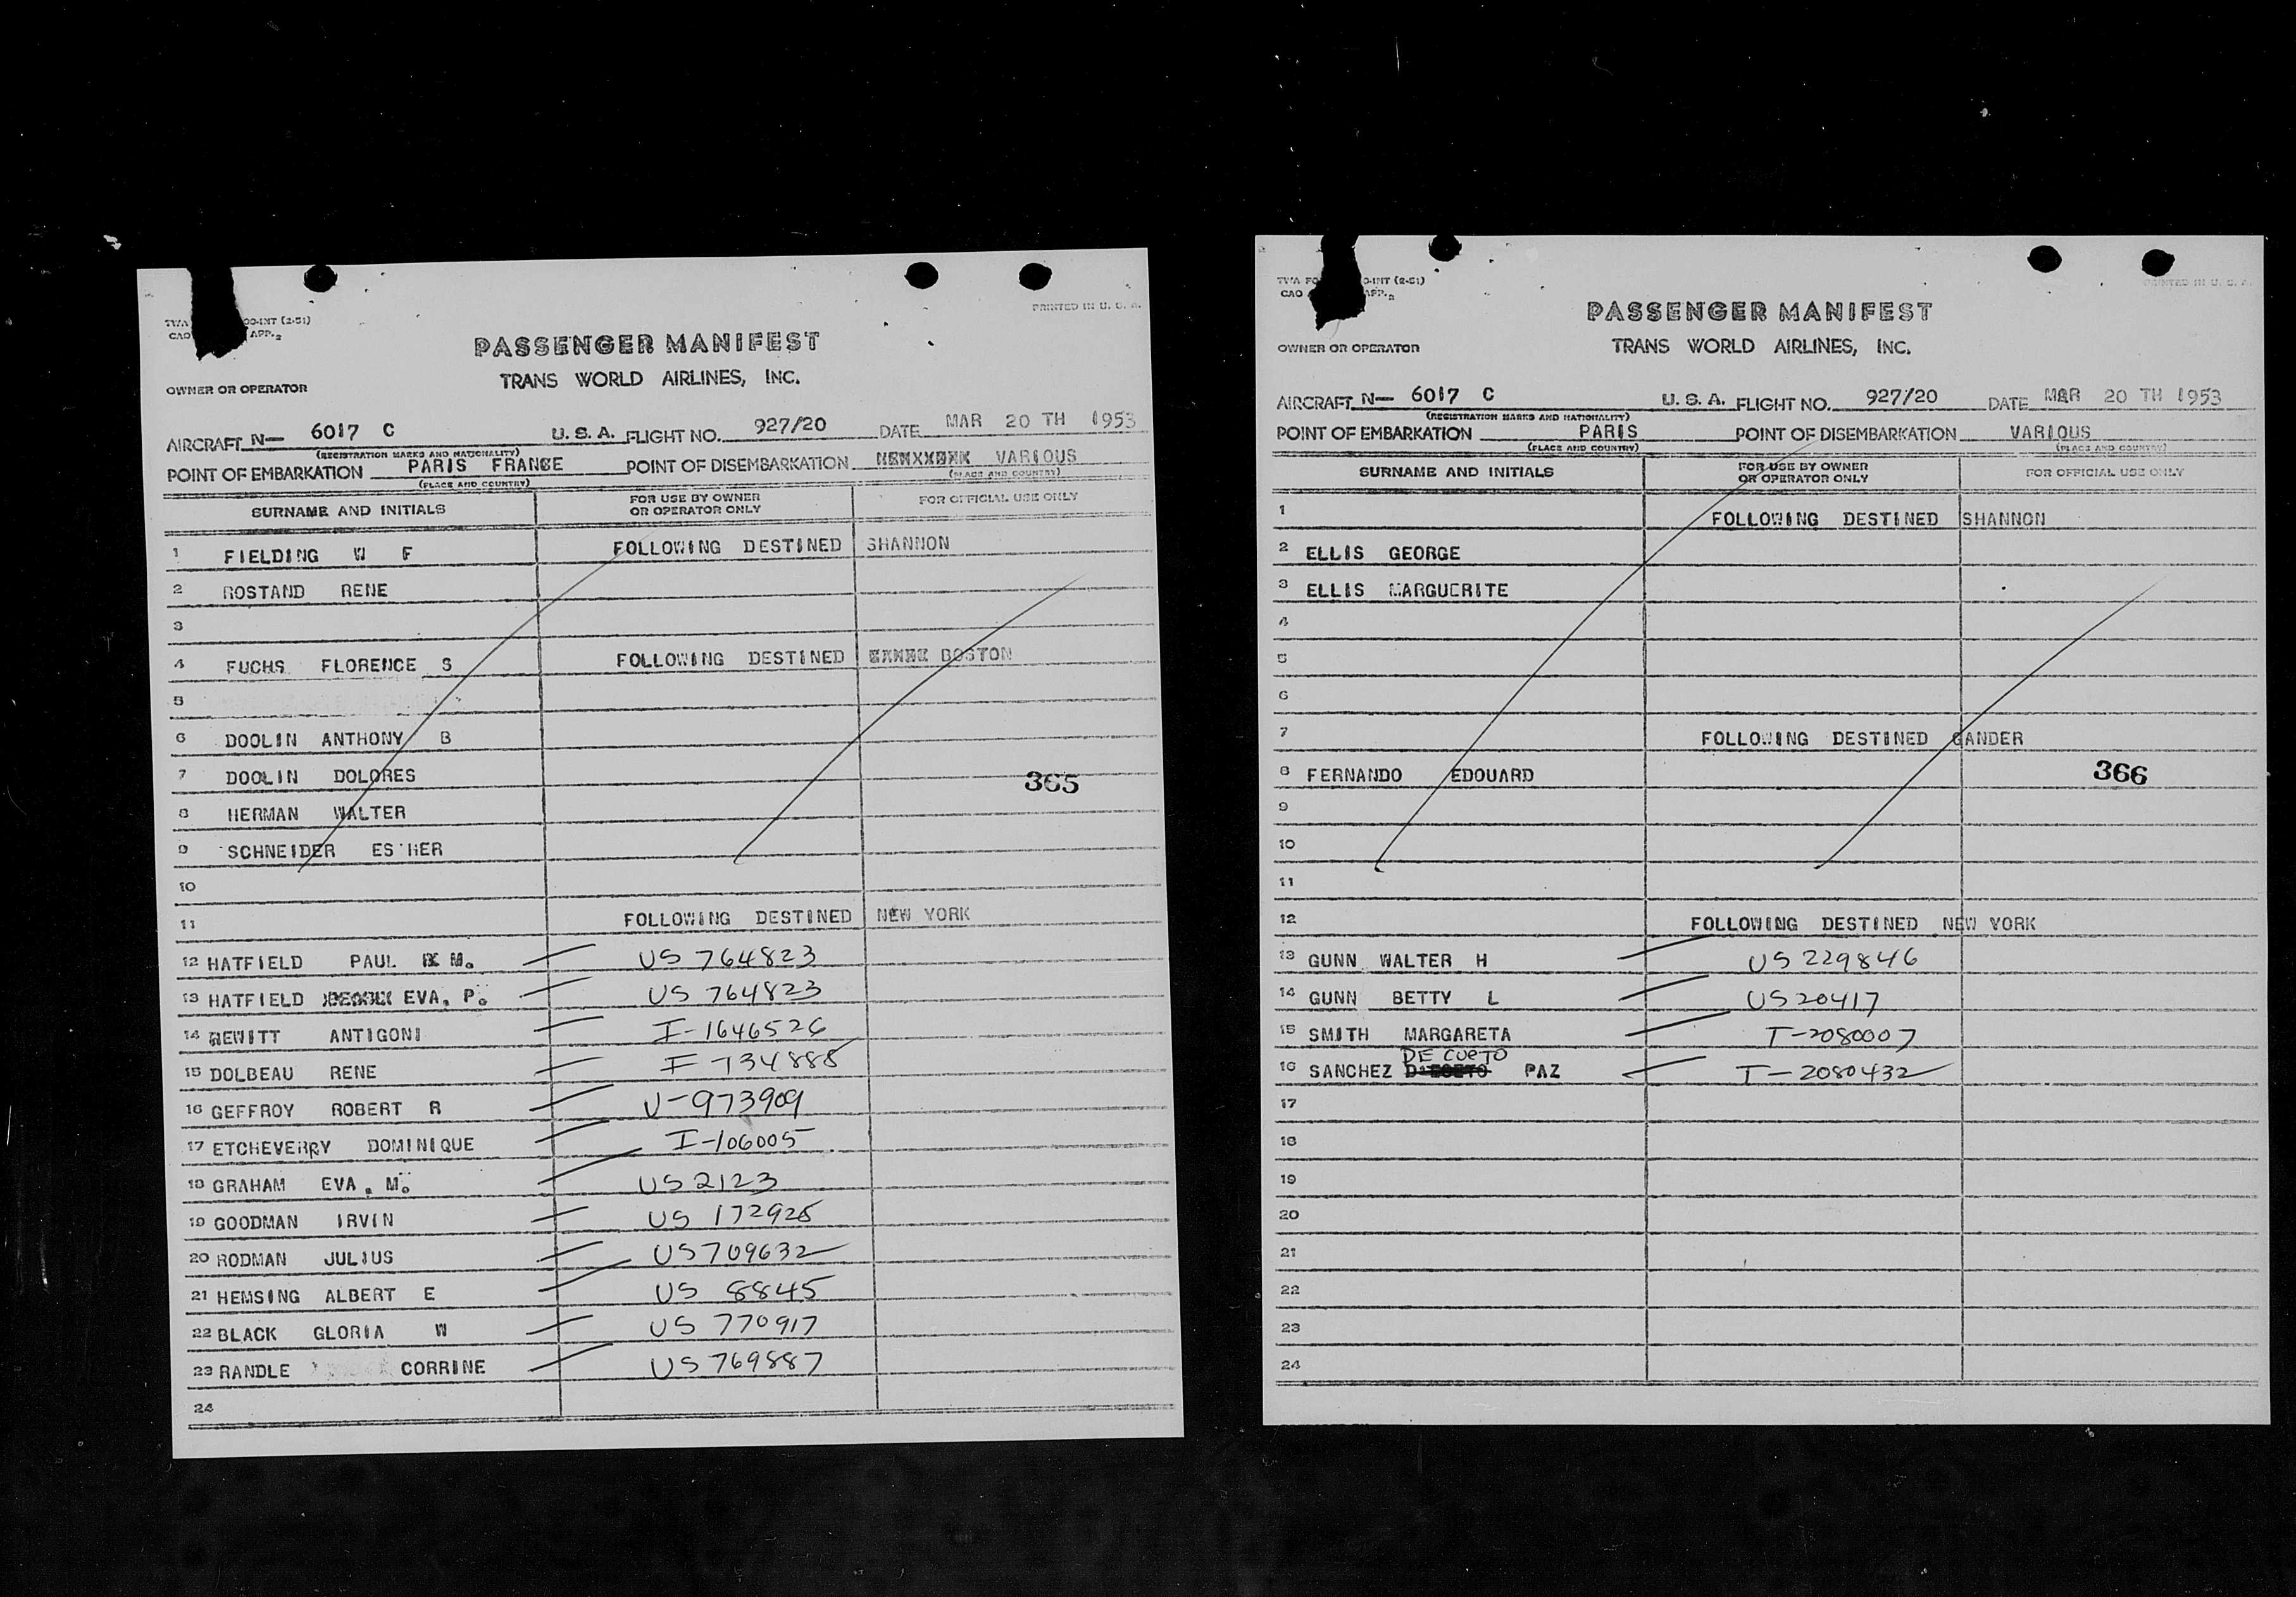 PRINTED IN U. S. A.
TWA OO-INT (2-51)
CAO APP. 2
PASSENGER MANIFEST
TRANS WORLD AIRLINES, INC.
OWNER OR OPERATOR
AIRCRAFT N— 6017 C U. S. A. FLIGHT NO. 927/20 DATE MAR 20 TH 1953
(REGISTRATION MARKS AND NATIONALITY)
POINT OF EMBARKATION PARIS FRANCE POINT OF DISEMBARKATION VARIOUS
(PLACE AND COUNTRY) (PLACE AND COUNTRY)
SURNAME AND INITIALS FOR USE BY OWNER OR OPERATOR ONLY FOR OFFICIAL USE ONLY
1 FIELDING W F FOLLOWING DESTINED SHANNON
2 ROSTAND RENE
3
4 FUCHS FLORENCE S FOLLOWING DESTINED BOSTON
5
6 DOOLIN ANTHONY B
7 DOOLIN DOLORES 365
8 HERMAN WALTER
9 SCHNEIDER ES HER
10
11 FOLLOWING DESTINED NEW YORK
12 HATFIELD PAUL M. US 764823
13 HATFIELD EVA. P. US 764823
14 HEWITT ANTIGONI I-1646526
15 DOLBEAU RENE I-734885
16 GEFFROY ROBERT R V-973909
17 ETCHEVERRY DOMINIQUE I-106005
18 GRAHAM EVA. M. US 2123
19 GOODMAN IRVIN US 172925
20 RODMAN JULIUS US 709632
21 HEMSING ALBERT E US 8845
22 BLACK GLORIA W US 770917
23 RANDLE CORRINE US 769887
24
PRINTED IN U. S. A.
TWA FO O-INT (2-51)
CAO APP. 2
PASSENGER MANIFEST
TRANS WORLD AIRLINES, INC.
OWNER OR OPERATOR
AIRCRAFT N— 6017 C U. S. A. FLIGHT NO. 927/20 DATE MAR 20 TH 1953
(REGISTRATION MARKS AND NATIONALITY)
POINT OF EMBARKATION PARIS POINT OF DISEMBARKATION VARIOUS
(PLACE AND COUNTRY) (PLACE AND COUNTRY)
SURNAME AND INITIALS FOR USE BY OWNER OR OPERATOR ONLY FOR OFFICIAL USE ONLY
1 FOLLOWING DESTINED SHANNON
2 ELLIS GEORGE
3 ELLIS MARGUERITE
4
5
6
7 FOLLOWING DESTINED GANDER
8 FERNANDO EDOUARD 366
9
10
11
12 FOLLOWING DESTINED NEW YORK
13 GUNN WALTER H US 229846
14 GUNN BETTY L US 20417
15 SMITH MARGARETA T-2080007
DE CUETO
16 SANCHEZ PAZ T-2080432
17
18
19
20
21
22
23
24